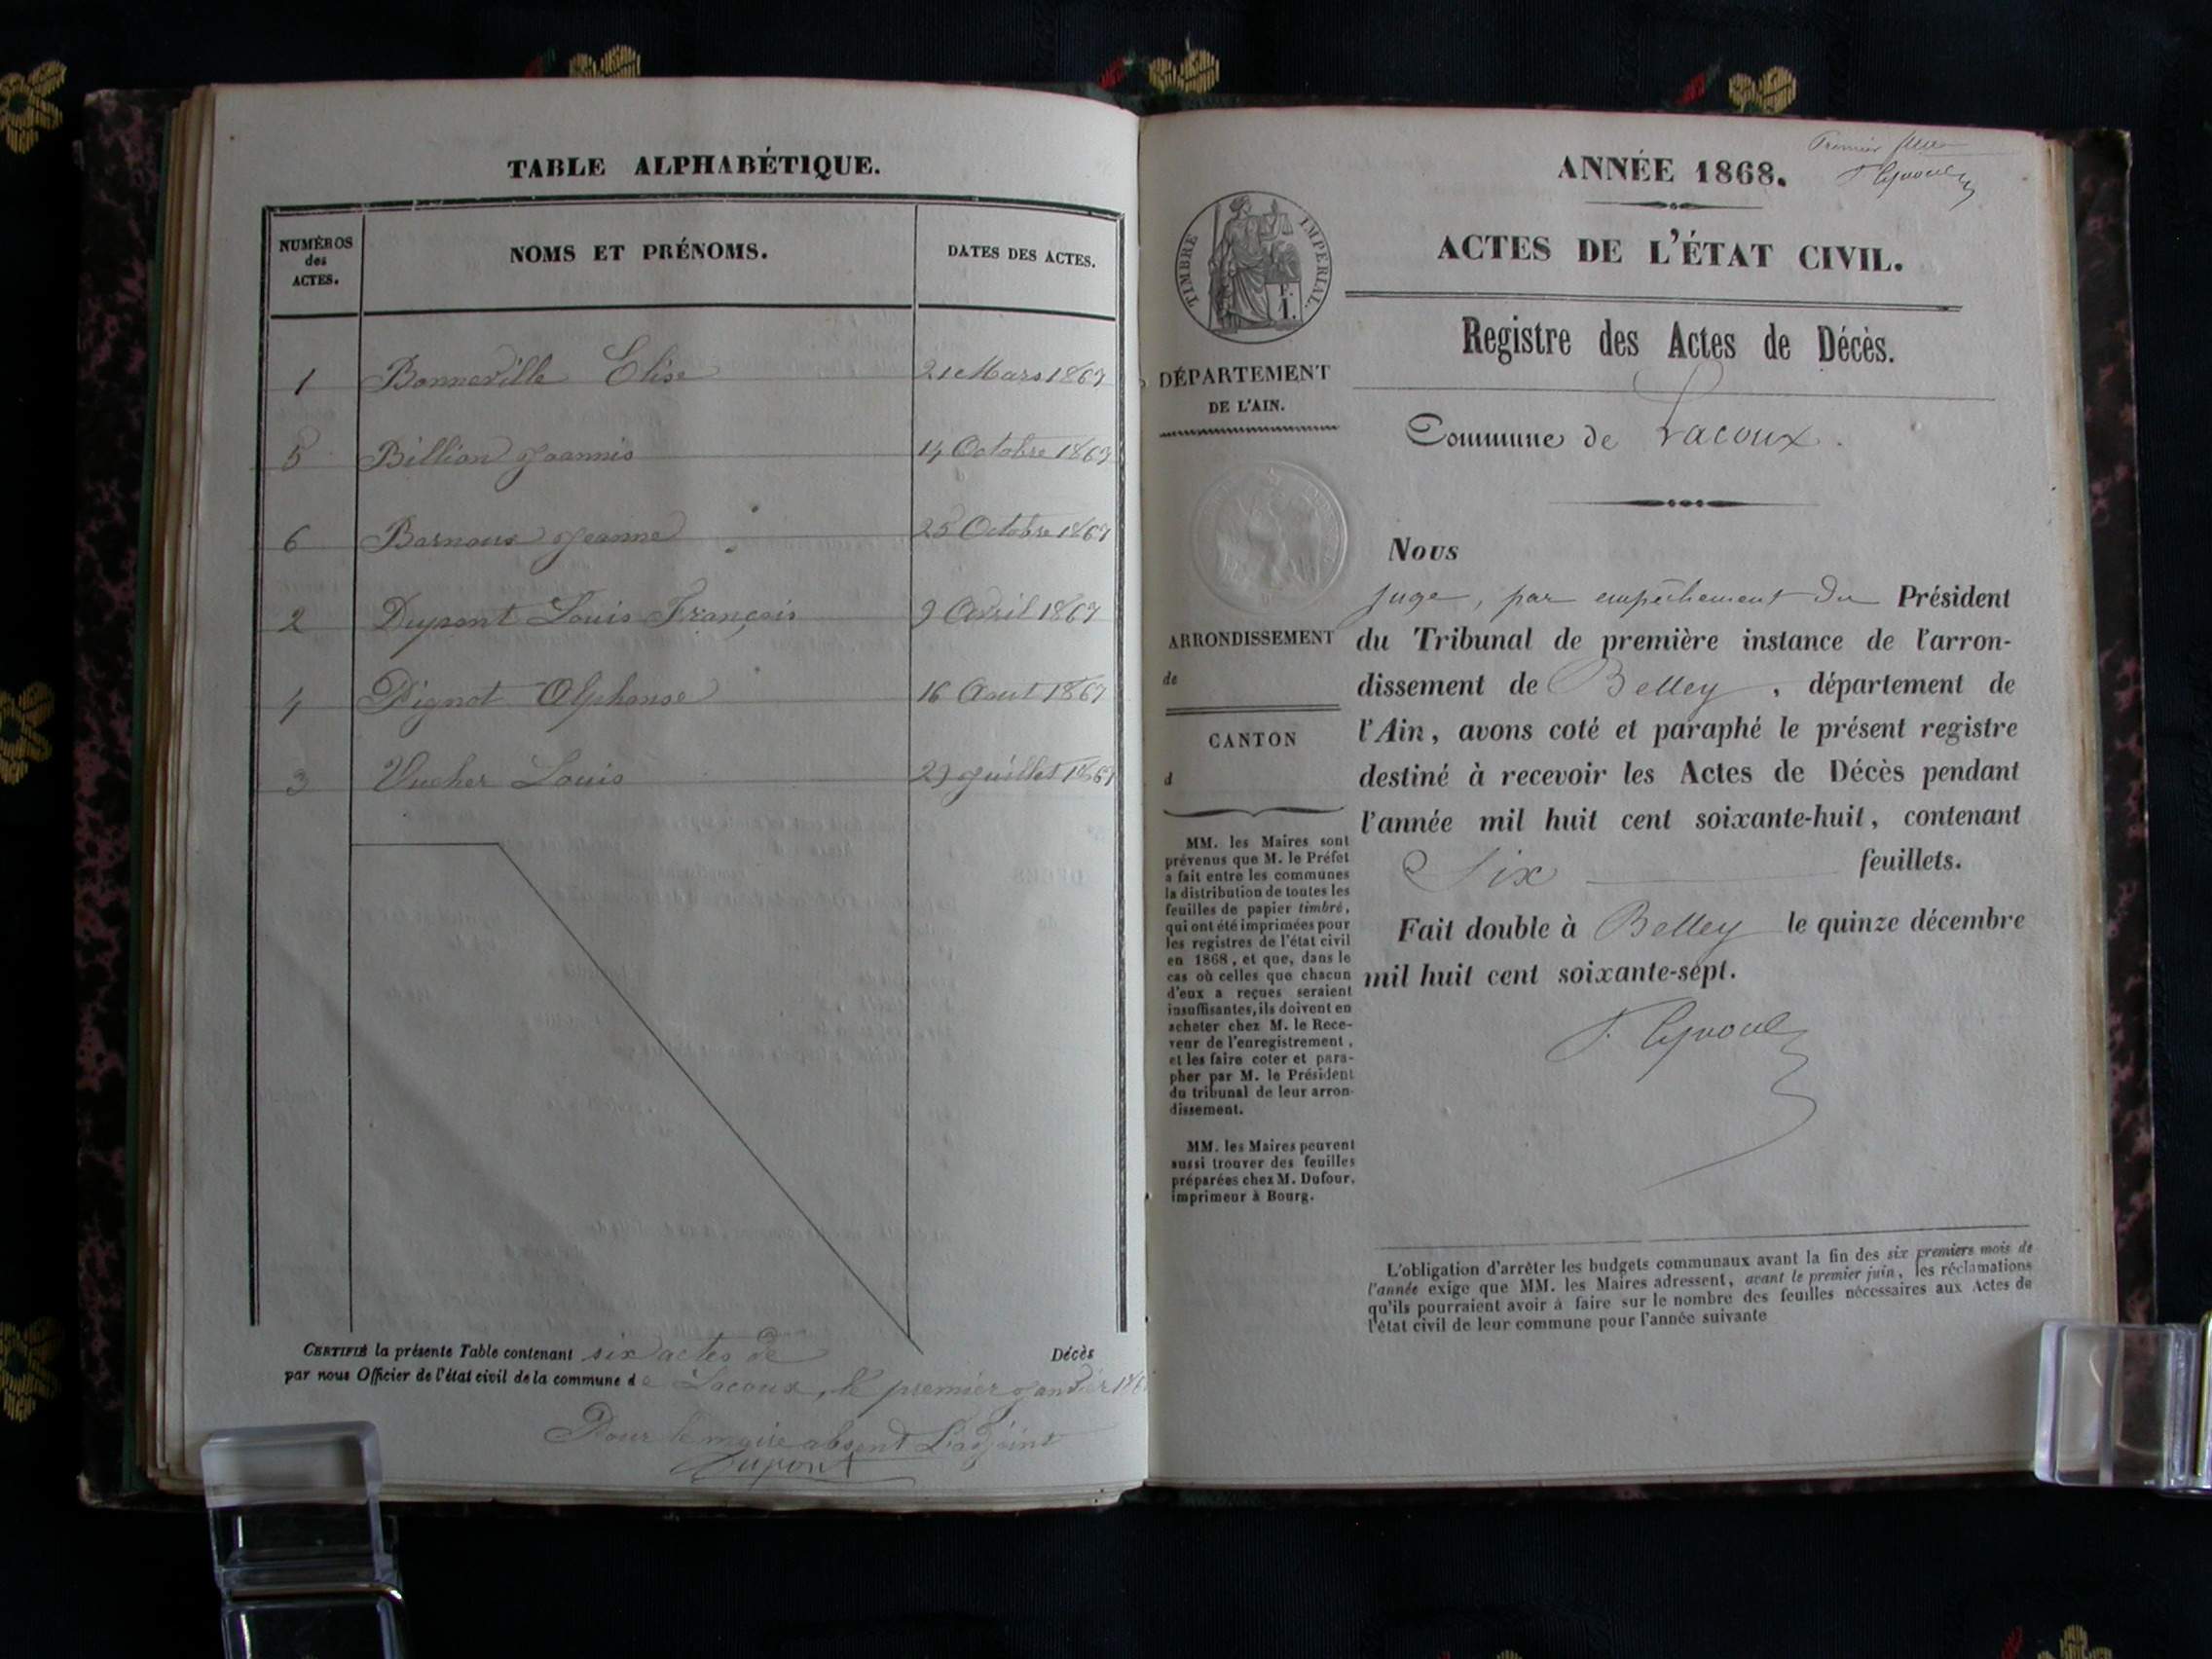 TABLE ALPHABÉTIQUE.
NUMÉROS
des
ACTES.
NOMS ET PRÉNOMS.
DATES DES ACTES.
1 Bonneville Elise 21 Mars 1867
5 Billion Joannis 14 Octobre 1867
6 Barnoux Jeanne 25 Octobre 1867
2 Dupont Louis François 9 Avril 1867
4 Pignot Alphonse 16 Aout 1867
3 Vucher Louis 29 Juillet 1867
CERTIFIÉ la présente Table contenant six actes de Décès
par nous Officier de l'état civil de la commune de Lacoux, le premier Janvier
Pour le maire absent L'adjoint
Dupont
Premier
ANNÉE 1868.
ACTES DE L'ÉTAT CIVIL.
TIMBRE IMPÉRIAL.
F.
1.
Registre des Actes de Décès.
DÉPARTEMENT
DE L'AIN.
Commune de Lacoux.
ARRONDISSEMENT
de
CANTON
d
MM. les Maires sont
prévenus que M. le Préfet
a fait entre les communes
la distribution de toutes les
feuilles de papier timbré,
qui ont été imprimées pour
les registres de l'état civil
en 1868, et que, dans le
cas où celles que chacun
d'eux a reçues seraient
insuffisantes, ils doivent en
acheter chez M. le Rece-
veur de l'enregistrement,
et les faire coter et para-
pher par M. le Président
du tribunal de leur arron-
dissement.
MM. les Maires peuvent
aussi trouver des feuilles
préparées chez M. Dufour,
imprimeur à Bourg.
Nous
juge, par empêchement du Président
du Tribunal de première instance de l'arron-
dissement de Belley, département de
l'Ain, avons coté et paraphé le présent registre
destiné à recevoir les Actes de Décès pendant
l'année mil huit cent soixante-huit, contenant
Six feuillets.
Fait double à Belley le quinze décembre
mil huit cent soixante-sept.
L'obligation d'arrêter les budgets communaux avant la fin des six premiers mois de
l'année exige que MM. les Maires adressent, avant le premier juin, les réclamations
qu'ils pourraient avoir à faire sur le nombre des feuilles nécessaires aux Actes de
l'état civil de leur commune pour l'année suivante